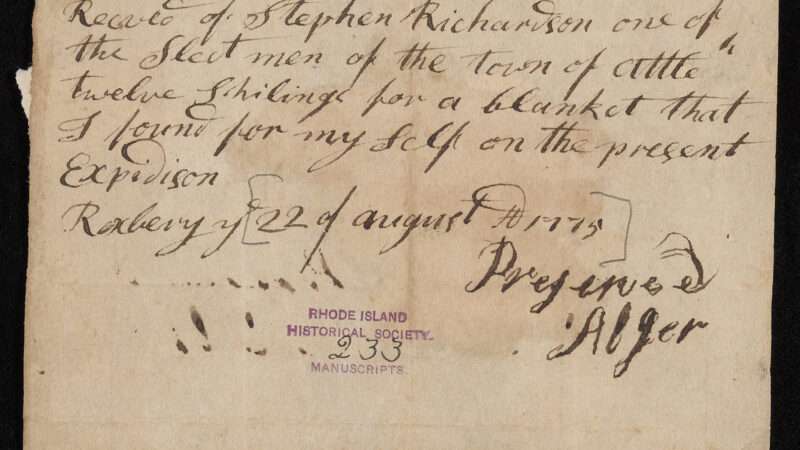 Receved of Stephen Richardson one of
the Slectmen of the town of Attleh
twelve Shilings for a blanket that
I found for my Self on the present
Expidison
Roxbery ye [22 of august AD 1775]
Preserved
Alger
RHODE ISLAND
HISTORICAL SOCIETY.
233
MANUSCRIPTS.